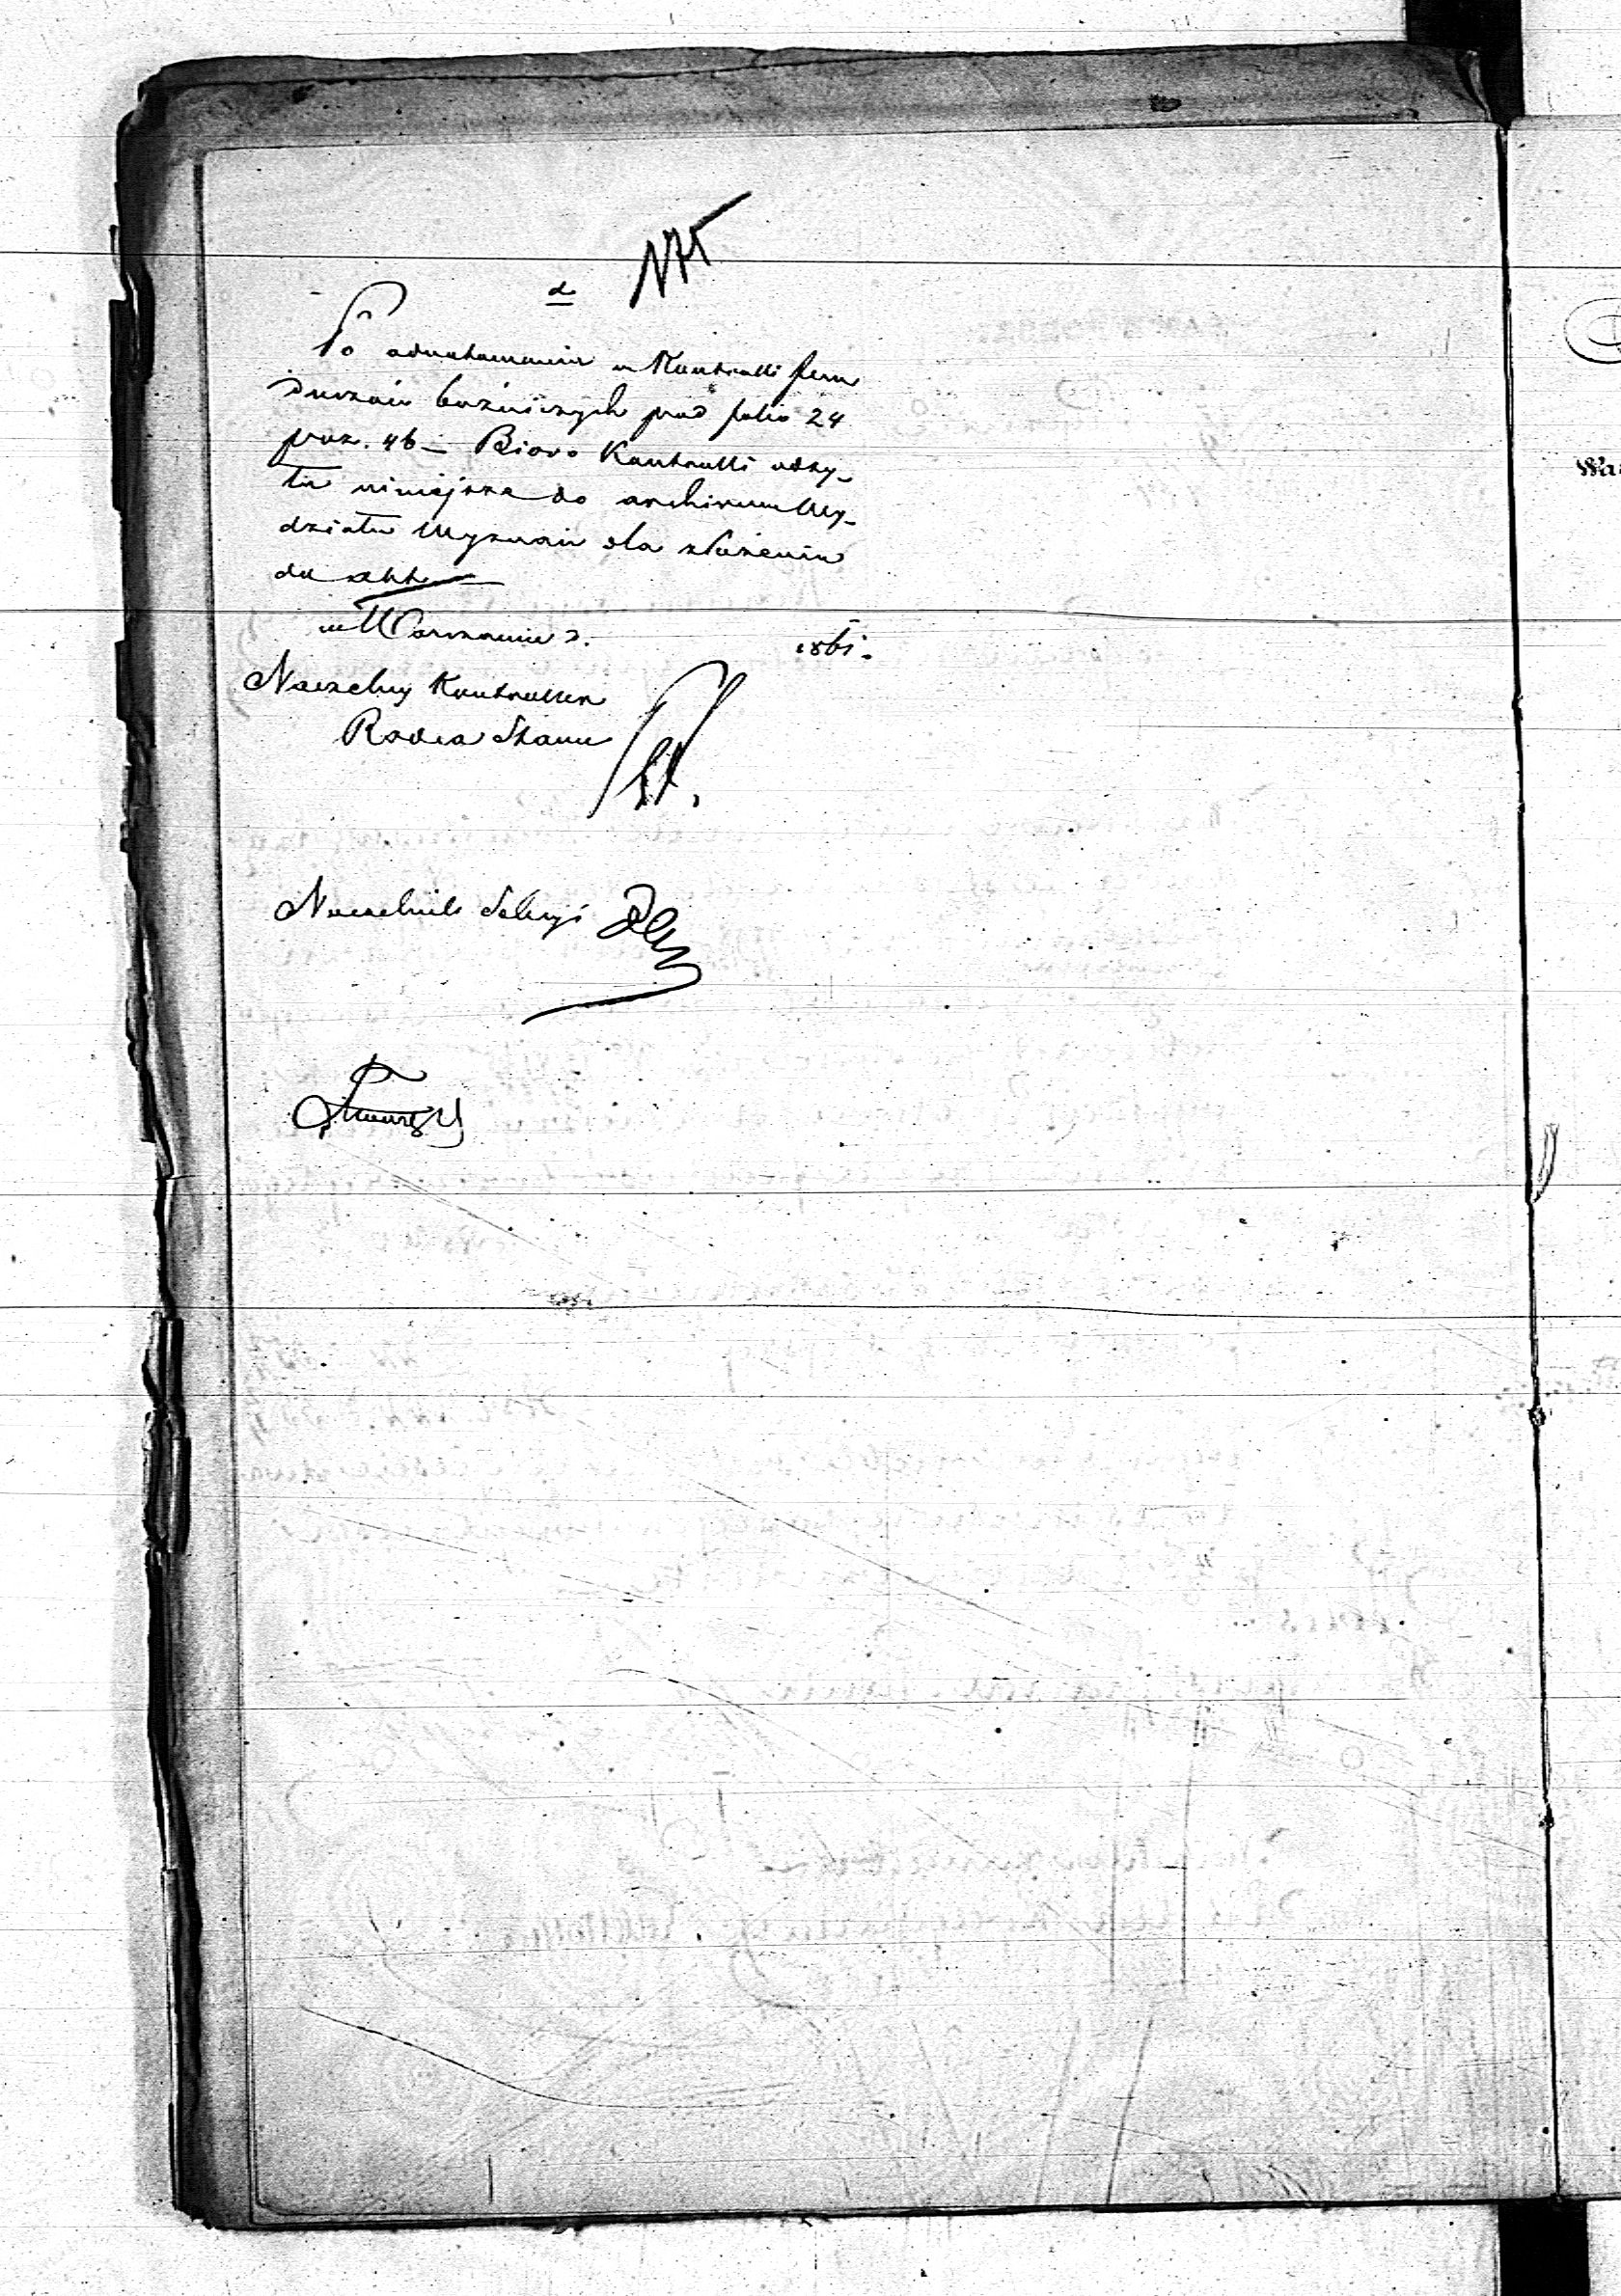 d
Po adnotowaniu w Kontrolli fun
duszów bóżniczych pod folio 24
poz. 46 – Bióro Kontrolli odsy–
ła niniejsze do archiwum Wy–
działu Wyznań dla złożenia
do akt
w Warszawie d. 1861.
Naczelny Kontroller
Radca Stanu
Naczelnik Sekcyi